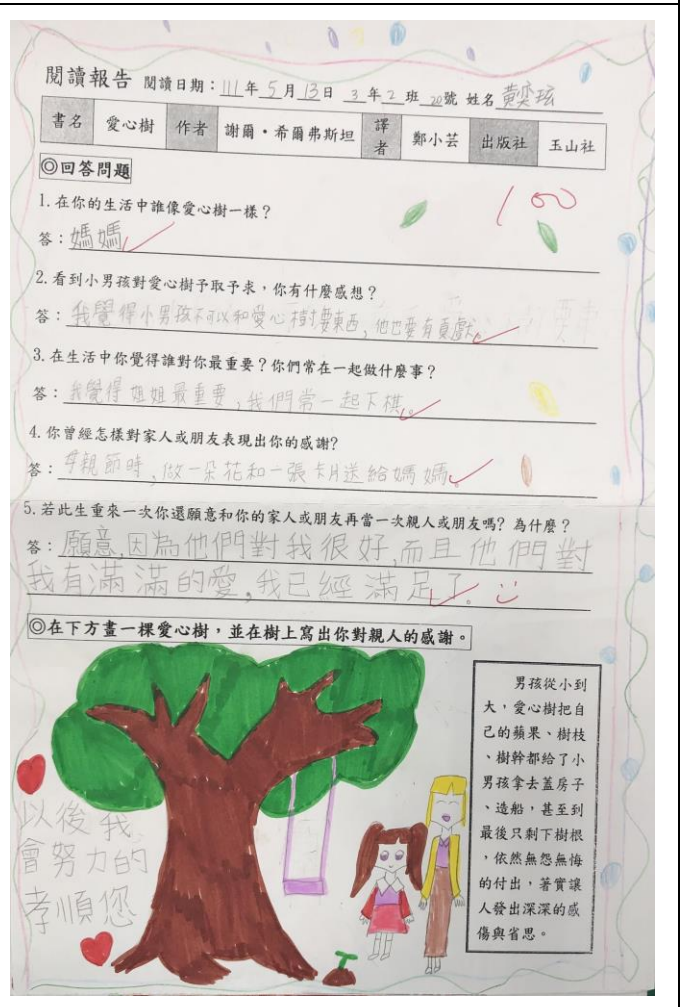 閱讀報告 閱讀日期：111年5月13日 3年2班20號 姓名黃奕玹
書名 愛心樹 作者 謝爾•希爾弗斯坦 譯者 鄭小芸 出版社 玉山社
◎回答問題
100
1.在你的生活中誰像愛心樹一樣？
答：媽媽
2.看到小男孩對愛心樹予取予求，你有什麼感想？
答：我覺得小男孩不可以和愛心樹要東西，他也要有貢獻。
3.在生活中你覺得誰對你最重要？你們常在一起做什麼事？
答：我覺得姐姐最重要，我們常一起下棋。
4.你曾經怎樣對家人或朋友表現出你的感謝?
答：母親節時，做一朵花和一張卡片送給媽媽。
5.若此生重來一次你還願意和你的家人或朋友再當一次親人或朋友嗎? 為什麼？
答：願意,因為他們對我很好,而且他們對
我有滿滿的愛,我已經滿足了。
◎在下方畫一棵愛心樹，並在樹上寫出你對親人的感謝。
以後我
會努力的
孝順您
男孩從小到
大，愛心樹把自
己的蘋果、樹枝
、樹幹都給了小
男孩拿去蓋房子
、造船，甚至到
最後只剩下樹根
，依然無怨無悔
的付出，著實讓
人發出深深的感
傷與省思。